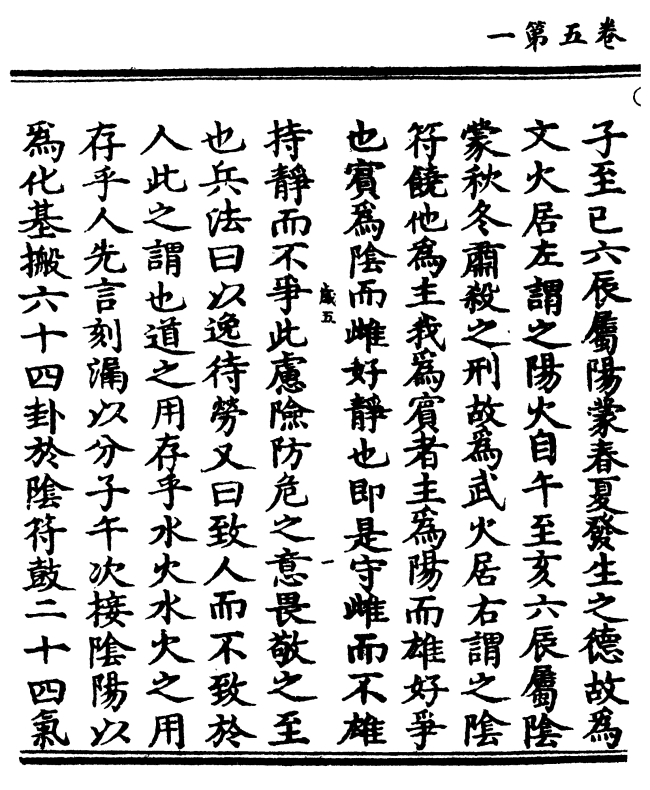 卷五第一
子至巳六辰屬陽蒙春夏發生之德故為
文火居左謂之陽火自午至亥六辰屬陰
蒙秋冬肅殺之刑故為武火居右謂之陰
符饒他為主我為賓者主為陽而雄好爭
也賓為陰而雌好靜也即是守雌而不雄
歲五
一
持靜而不爭此慮險防危之意畏敬之至
也兵法曰以逸待勞又曰致人而不致於
人此之謂也道之用存乎水火水火之用
存乎人先言刻漏以分子午次接陰陽以
為化基搬六十四卦於陰符鼓二十四氣